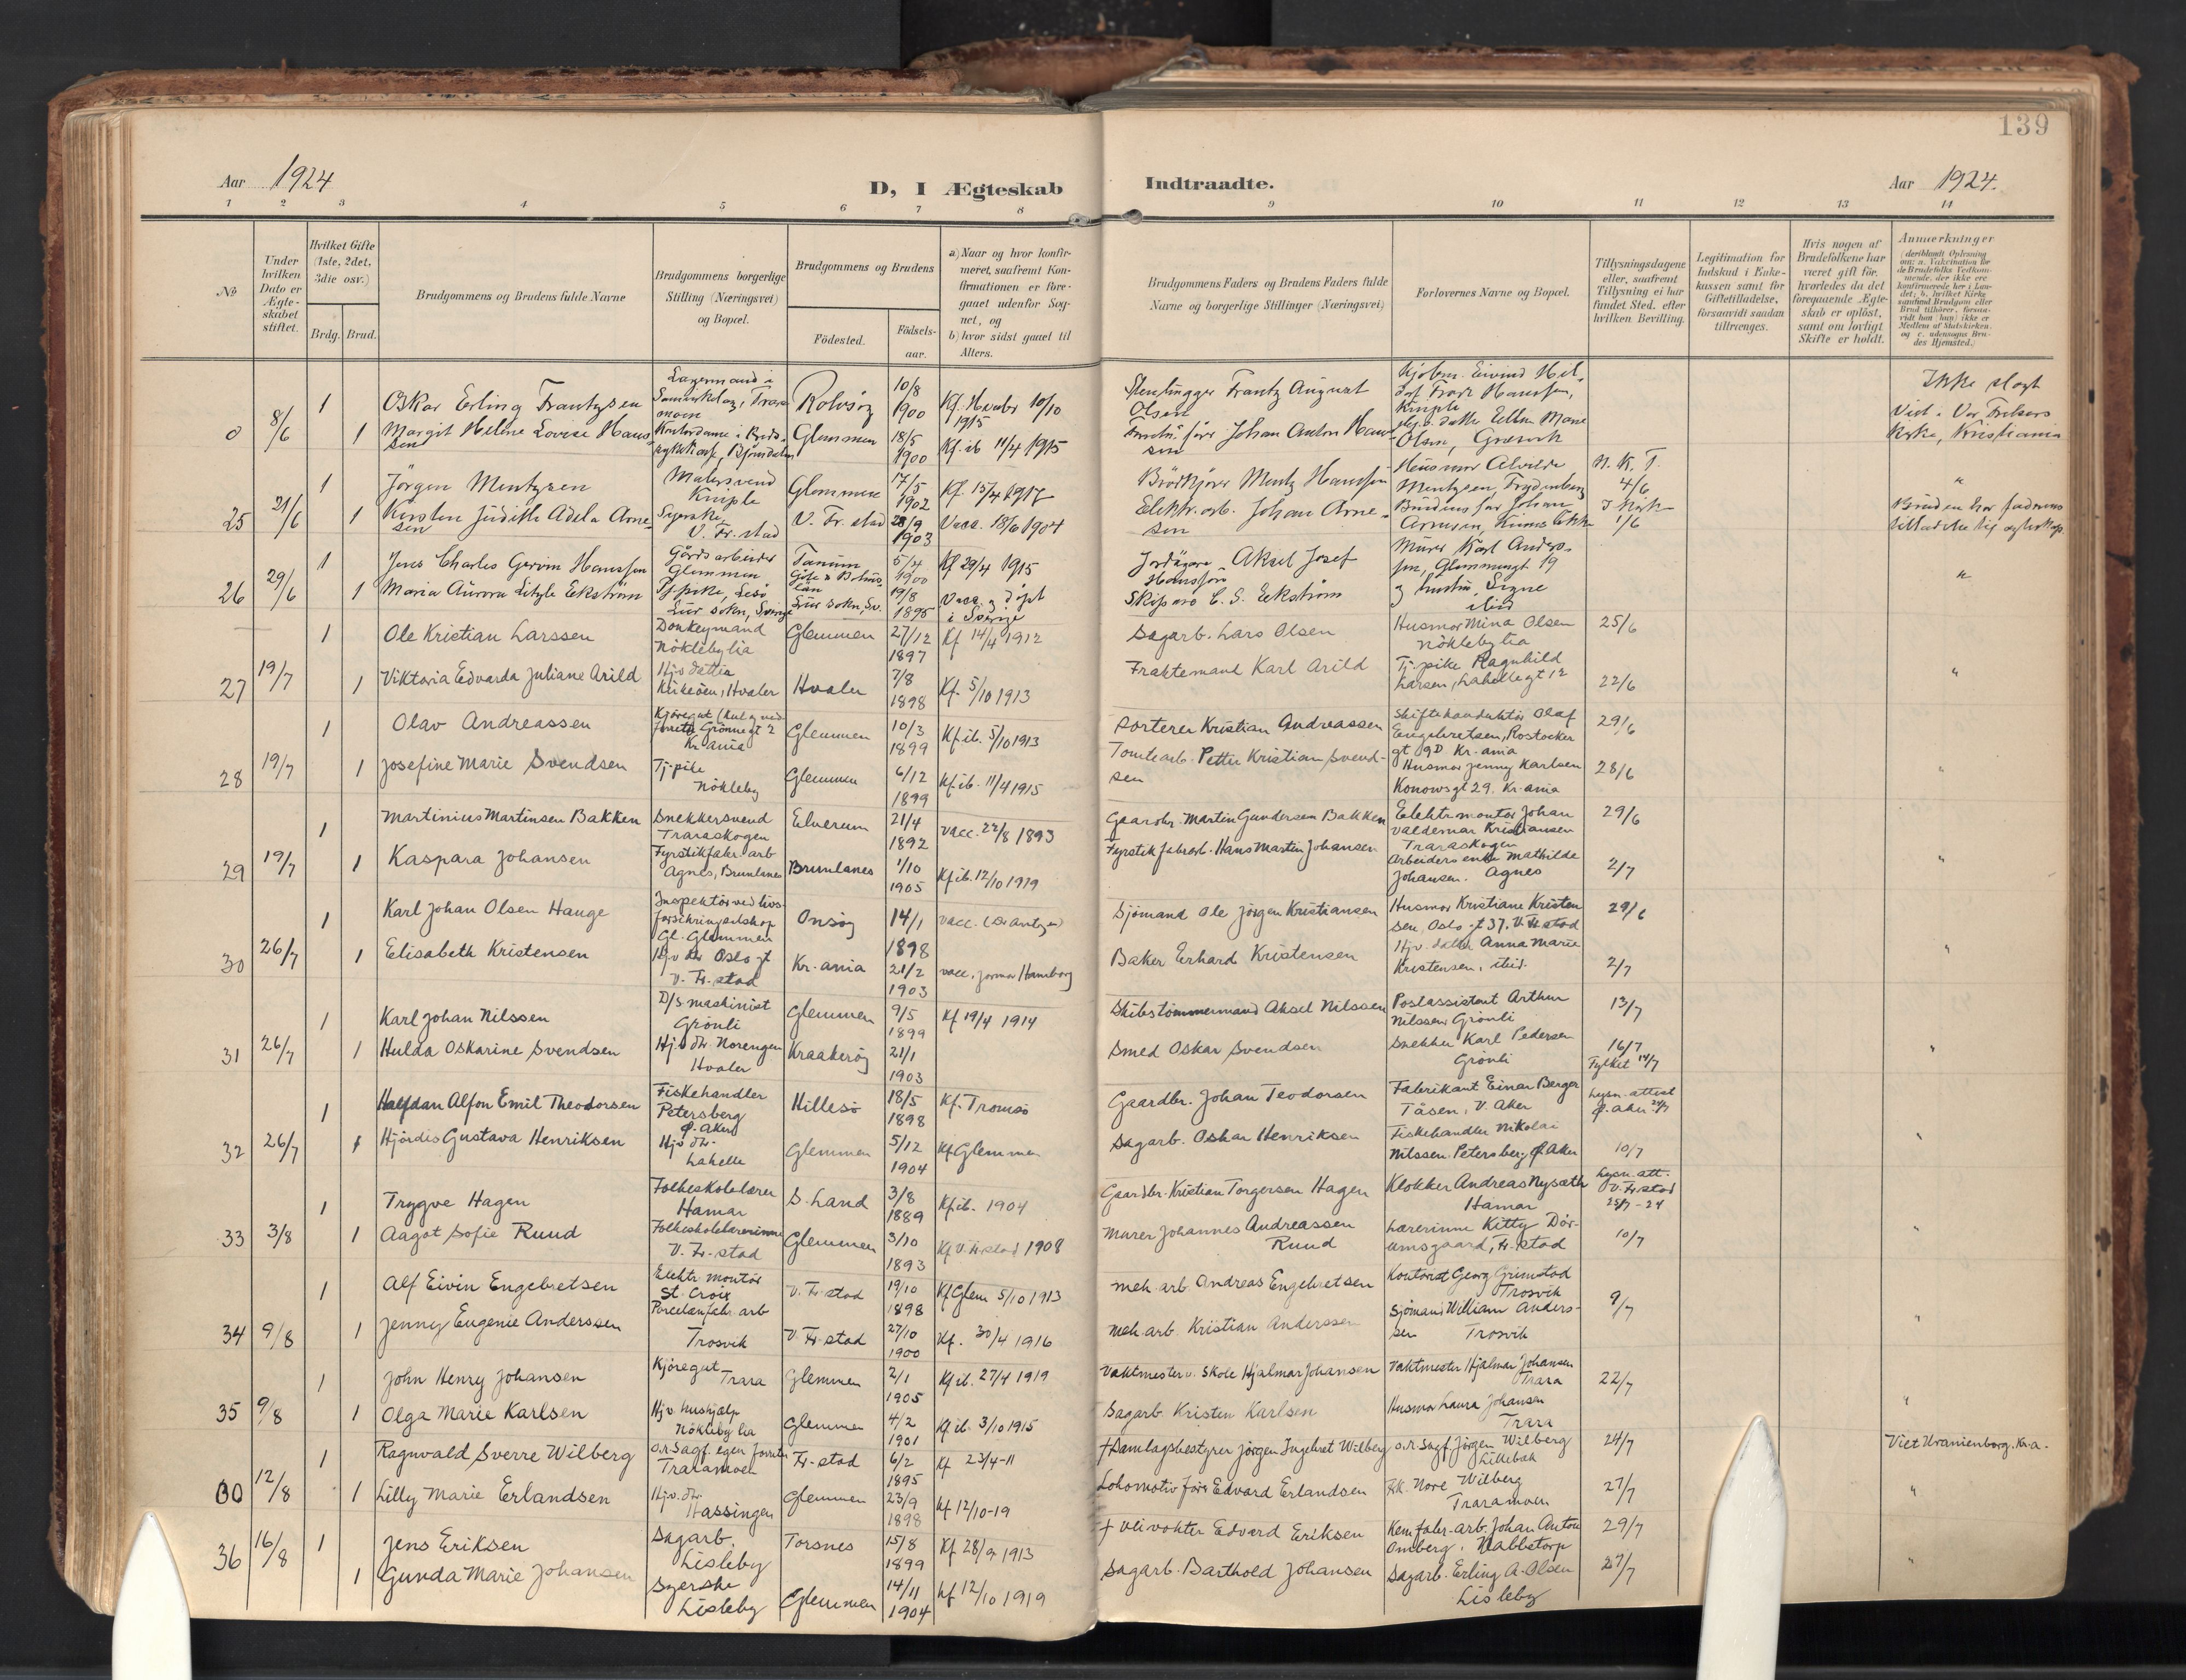 139
Aar 1924
D, I Ægteskab
Indtraadte.
Aar 1924.
1 2 3 4 5 6 7 8 9 10 11 12 13 14
No
Under hvilken Dato er Ægte-skabet stiftet.
Hvilket Gifte (1ste, 2det, 3die osv.)
Brdg. Brud.
Brudgommens og Brudens fulde Navne
Brudgommens borgerlige Stilling (Næringsvei) og Bopæl.
Brudgommens og Brudens
Födested.
Födsels-aar.
a) Naar og hvor konfir-meret, saafremt Kon-firmationen er fore-gaaet udenfor Sog-net, og
b) hvor sidst gaaet til Alters.
Brudgommens Faders og Brudens Faders fulde Navne og borgerlige Stillinger (Næringsvei)
Forlovernes Navne og Bopæl.
Tillysningsdagene eller, saafremt Tillysning ei har fundet Sted, efter hvilken Bevilling.
Legitimation for Indskud i Enke-kassen samt for Giftetilladelse, forsaavidt saadan tiltrænges.
Hvis nogen af Brudefolkene har været gift för, hvorledes da det foregaaende Ægte-skab er oplöst, samt om lovligt Skifte er holdt.
Anmærkninger
0 8/6 1 Oskar Erling Frantzsen Lagermand i Rolvsøy 10/8 1900 Kf. Hvaler 10/10 1915 Stenhugger Frantz August Olsen Ikke slegt
1 Margit Helene Lovise Hanssen Glemmen 18/5 1900 Kf. ib 11/4 1915 Johan Anton Hanssen Olsen, Gressvik Viet i Vor Frelsers Kirke, Kristiania
25 21/6 1 Jörgen Mentzsen Malersvend Kniple Glemmen 17/5 1902 Kf. 15/4 1917 Brödkjörer Mentz Hanssen Husmor Alvilde Mentzsen, N. K. T. 4/6 "
1 Kirsten Judith Adela Arnesen Syerske V. Fr. stad V. Fr. stad 28/9 1903 Vacc. 18/6 1904 Elektr. arb. Johan Arnesen Brudens far Johan Arnesen, 1/6 Bruden har faderens
26 29/6 1 Jens Charles Gervin Hanssen Gårdsarbeider Glemmen Tanum 5/4 1900 Kf 29/4 1915 Aksel Josef Murer Karl Anderssen, Glemmengt 19 "
1 Maria Aurora Ekström Lur sokn, Sverige Lur sokn, Sv. 19/8 1895 Vacc. og döpt i Sverige C. G. Ekström og hustru, Signe ibid
27 19/7 1 Ole Kristian Larssen Donkeymand Nöklebylia Glemmen 27/12 1897 Kf 14/4 1912 Sagarb. Lars Olsen Husmor Mina Olsen Nöklebylia 25/6
1 Viktoria Edvarda Juliane Arild Hjv. datter Kirkeöen, Hvaler Hvaler 7/8 1898 Kf. 5/10 1913 Fraktemand Karl Arild Tj. pike Ragnhild Larsen, Lahellegt 12 22/6 "
28 19/7 1 Olav Andreassen Kjöregut (Kul og ved Grönnegt 2 Kr.ania Glemmen 10/3 1899 Kf. ib. 5/10 1913 Sorterer Kristian Andreassen Skiftekonduktör Olaf Engebretsen, Rostockergt 9D Kr.ania 29/6
1 Josefine Marie Svendsen Tj. pike Nökleby Glemmen 6/12 1899 Kf. ib. 11/4 1915 Tomtearb. Petter Kristian Svendsen Husmor Jenny Karlsen Konowsgt 29. Kr.ania 28/6 "
29 19/7 1 Martinius Martinsen Bakken Snekkersvend Traraskogen Elverum 21/4 1892 Vacc. 22/8 1893 Gaardbr. Martin Gundersen Bakken Elektr. montör Johan Valdemar Kristiansen Traraskogen 29/6
1 Kaspara Johansen Fyrstikfabr. arb Agnes, Brunlanes Brunlanes 1/10 1905 Kf ib. 12/10 1919 Fyrstikfabrarb. Hans Martin Johansen Arbeiders enke Mathilde Johansen. Agnes 2/7 "
30 26/7 1 Karl Johan Olsen Hauge Inspektör ved livsforsikringsselskap Gl. Glemmen Onsöy 14/1 1898 Vacc. Sjömand Ole Jörgen Kristiansen Husmor Kristiane Kristensen, Oslogt 37. V. Fr.stad 29/6
1 Elisabeth Kristensen Hjv dtr Oslogt V. Fr. stad Kr.ania 21/2 1903 Vacc. Baker Erhard Kristensen Hjv. datter Anna Marie Kristensen, ibid. 2/7 "
31 26/7 1 Karl Johan Nilssen D/S maskinist Grönli Glemmen 9/5 1899 Kf 19/4 1914 Skibstömmermand Aksel Nilssen Postassistent Arthur Nilssen Grönli 13/7
1 Hulda Oskarine Svendsen Hjv. dtr. Norengen Hvaler Kraakeröy 21/1 1903 Smed Oskar Svendsen Snekker Karl Pedersen Grönli 16/7 Fylket 14/7 "
32 26/7 1 Halfdan Alfon Emil Theodorsen Fiskehandler Petersberg Ø. Aker Hillesö 18/5 1898 Kf. Tromsö Gaardbr. Johan Teodorsen Fabrikant Einar Berger Tåsen, V. Aker Lysn. attest Ø. Aker 24/7
1 Hjördis Gustava Henriksen Hjv dtr. Lahelle Glemmen 5/12 1904 Kf Glemmen Sagarb. Oskar Henriksen Fiskehandler Nikolai Nilssen. Petersberg, Ø. Aker 10/7 "
33 3/8 1 Trygve Hagen Folkeskolelærer Hamar S. Land 3/8 1889 Kf ib. 1904 Gaardbr. Kristian Torgersen Hagen Klokker Andreas Nysæth Hamar Lysn. att. V. Fr.stad 25/7-24
1 Aagot Sofie Ruud Folkeskolelærerinne V. Fr.stad Glemmen 3/10 1893 Kf V. Fr.stad 1908 Murer Johannes Andreassen Ruud Lærerinne Kitty Dörumsgaard, Fr.stad 10/7 "
34 9/8 1 Alf Eivin Engebretsen Elektr. montör St. Croix V. Fr. stad 19/10 1898 Kf Glem 5/10 1913 Mek. arb. Andreas Engebretsen Kontorist Georg Grimstad Trosvik 9/7
1 Jenny Eugenie Anderssen Porcelænfabr. arb Trosvik V. Fr. stad 27/10 1900 Kf. 30/4 1916 Mek. arb. Kristian Anderssen Sjömand William Anderssen Trosvik "
35 9/8 1 John Henry Johansen Kjöregut Trara Glemmen 2/1 1905 Kf ib. 27/4 1919 Vaktmester v. Skole Hjalmar Johansen Vaktmester Hjalmar Johansen Trara 22/7
1 Olga Marie Karlsen Hjv. hushjælp Nökleby lia Glemmen 4/2 1901 Kf ib. 3/10 1915 Sagarb. Kristen Karlsen Husmor Laura Johansen Trara "
00 12/8 1 Ragnvald Sverre Wilberg o.r. Sagf. egen forretn Traramoen Fr.stad 6/2 1895 Kf 23/4-11 † Samlagsbestyrer Jörgen Ingebret Wilberg o.r. Sagf. Jörgen Wilberg Lillebæk 24/7 Viet Uranienborg. Kr.a.
1 Lilly Marie Erlandsen Hjv. dtr. Hassingen Glemmen 23/9 1898 Kf 12/10-19 Lokomotivförer Edvard Erlandsen Frk. Nore Wilberg Traramoen 27/7 "
36 16/8 1 Jens Eriksen Sagarb. Lisleby Torsnes 15/8 1899 Kf 28/9 1913 † Veivokter Edvard Eriksen Kem. fabr. arb. Johan Anton Omberg, Nabbetorp 29/7
1 Gunda Marie Johansen Syerske Lisleby Glemmen 14/11 1904 Kf 12/10 1919 Sagarb. Barthold Johansen Sagarb. Erling A. Olsen Lisleby 27/7 "